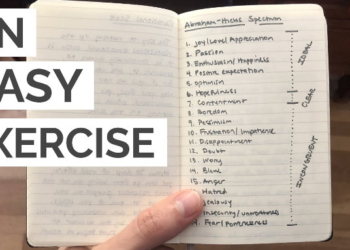 N
ASY
XERCISE
Abraham-Hicks Spectrum
1. Joy/Love/Appreciation
2. Passion
3. Enthusiasm/Happiness
4. Positive Expectation
5. Optimism
6. Hopefulness
7. Contentment
8. Boredom
9. Pessimism
10. Frustration/Impatience
11. Disappointment
12. Doubt
13. Worry
14. Blame
15. Anger
Hatred
Jealousy
Insecurity/
Fear/Powerlessness
IDEAL
CLEAR
INCONGRUENT